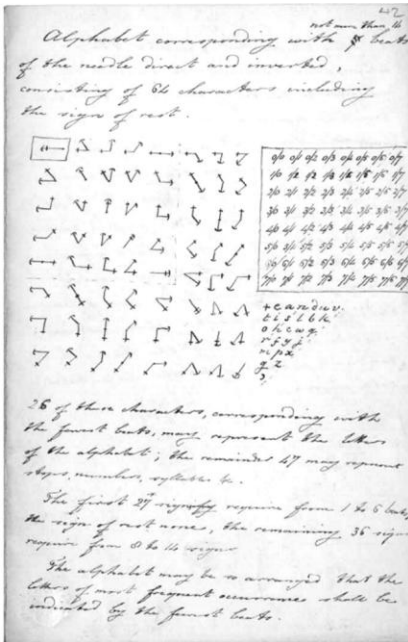 42
not more than 14
Alphabet corresponding with beats
of the needle direct and inverted,
consisting of 64 characters including
the sign of rest.
0/0 0/1 0/2 0/3 0/4 0/5 0/6 0/7
1/0 1/1 1/2 1/3 1/4 1/5 1/6 1/7
2/0 2/1 2/2 2/3 2/4 2/5 2/6 2/7
3/0 3/1 3/2 3/3 3/4 3/5 3/6 3/7
4/0 4/1 4/2 4/3 4/4 4/5 4/6 4/7
5/0 5/1 5/2 5/3 5/4 5/5 5/6 5/7
6/0 6/1 6/2 6/3 6/4 6/5 6/6 6/7
7/0 7/1 7/2 7/3 7/4 7/5 7/6 7/7
+ e a n d u v
t i s l b k
o h c w q
r f y j
m p x
g z
26 of these characters, corresponding with
the fewest beats, may represent the letters
of the alphabet; the remainder 47 may represent
stops, numbers, syllables &c.
The first 27 require from 1 to 6 beats,
the sign of rest none, the remaining 36 signs
require from 8 to 14
The alphabet may be so arranged that the
letters of most frequent occurrence shall be
indicated by the fewest beats.